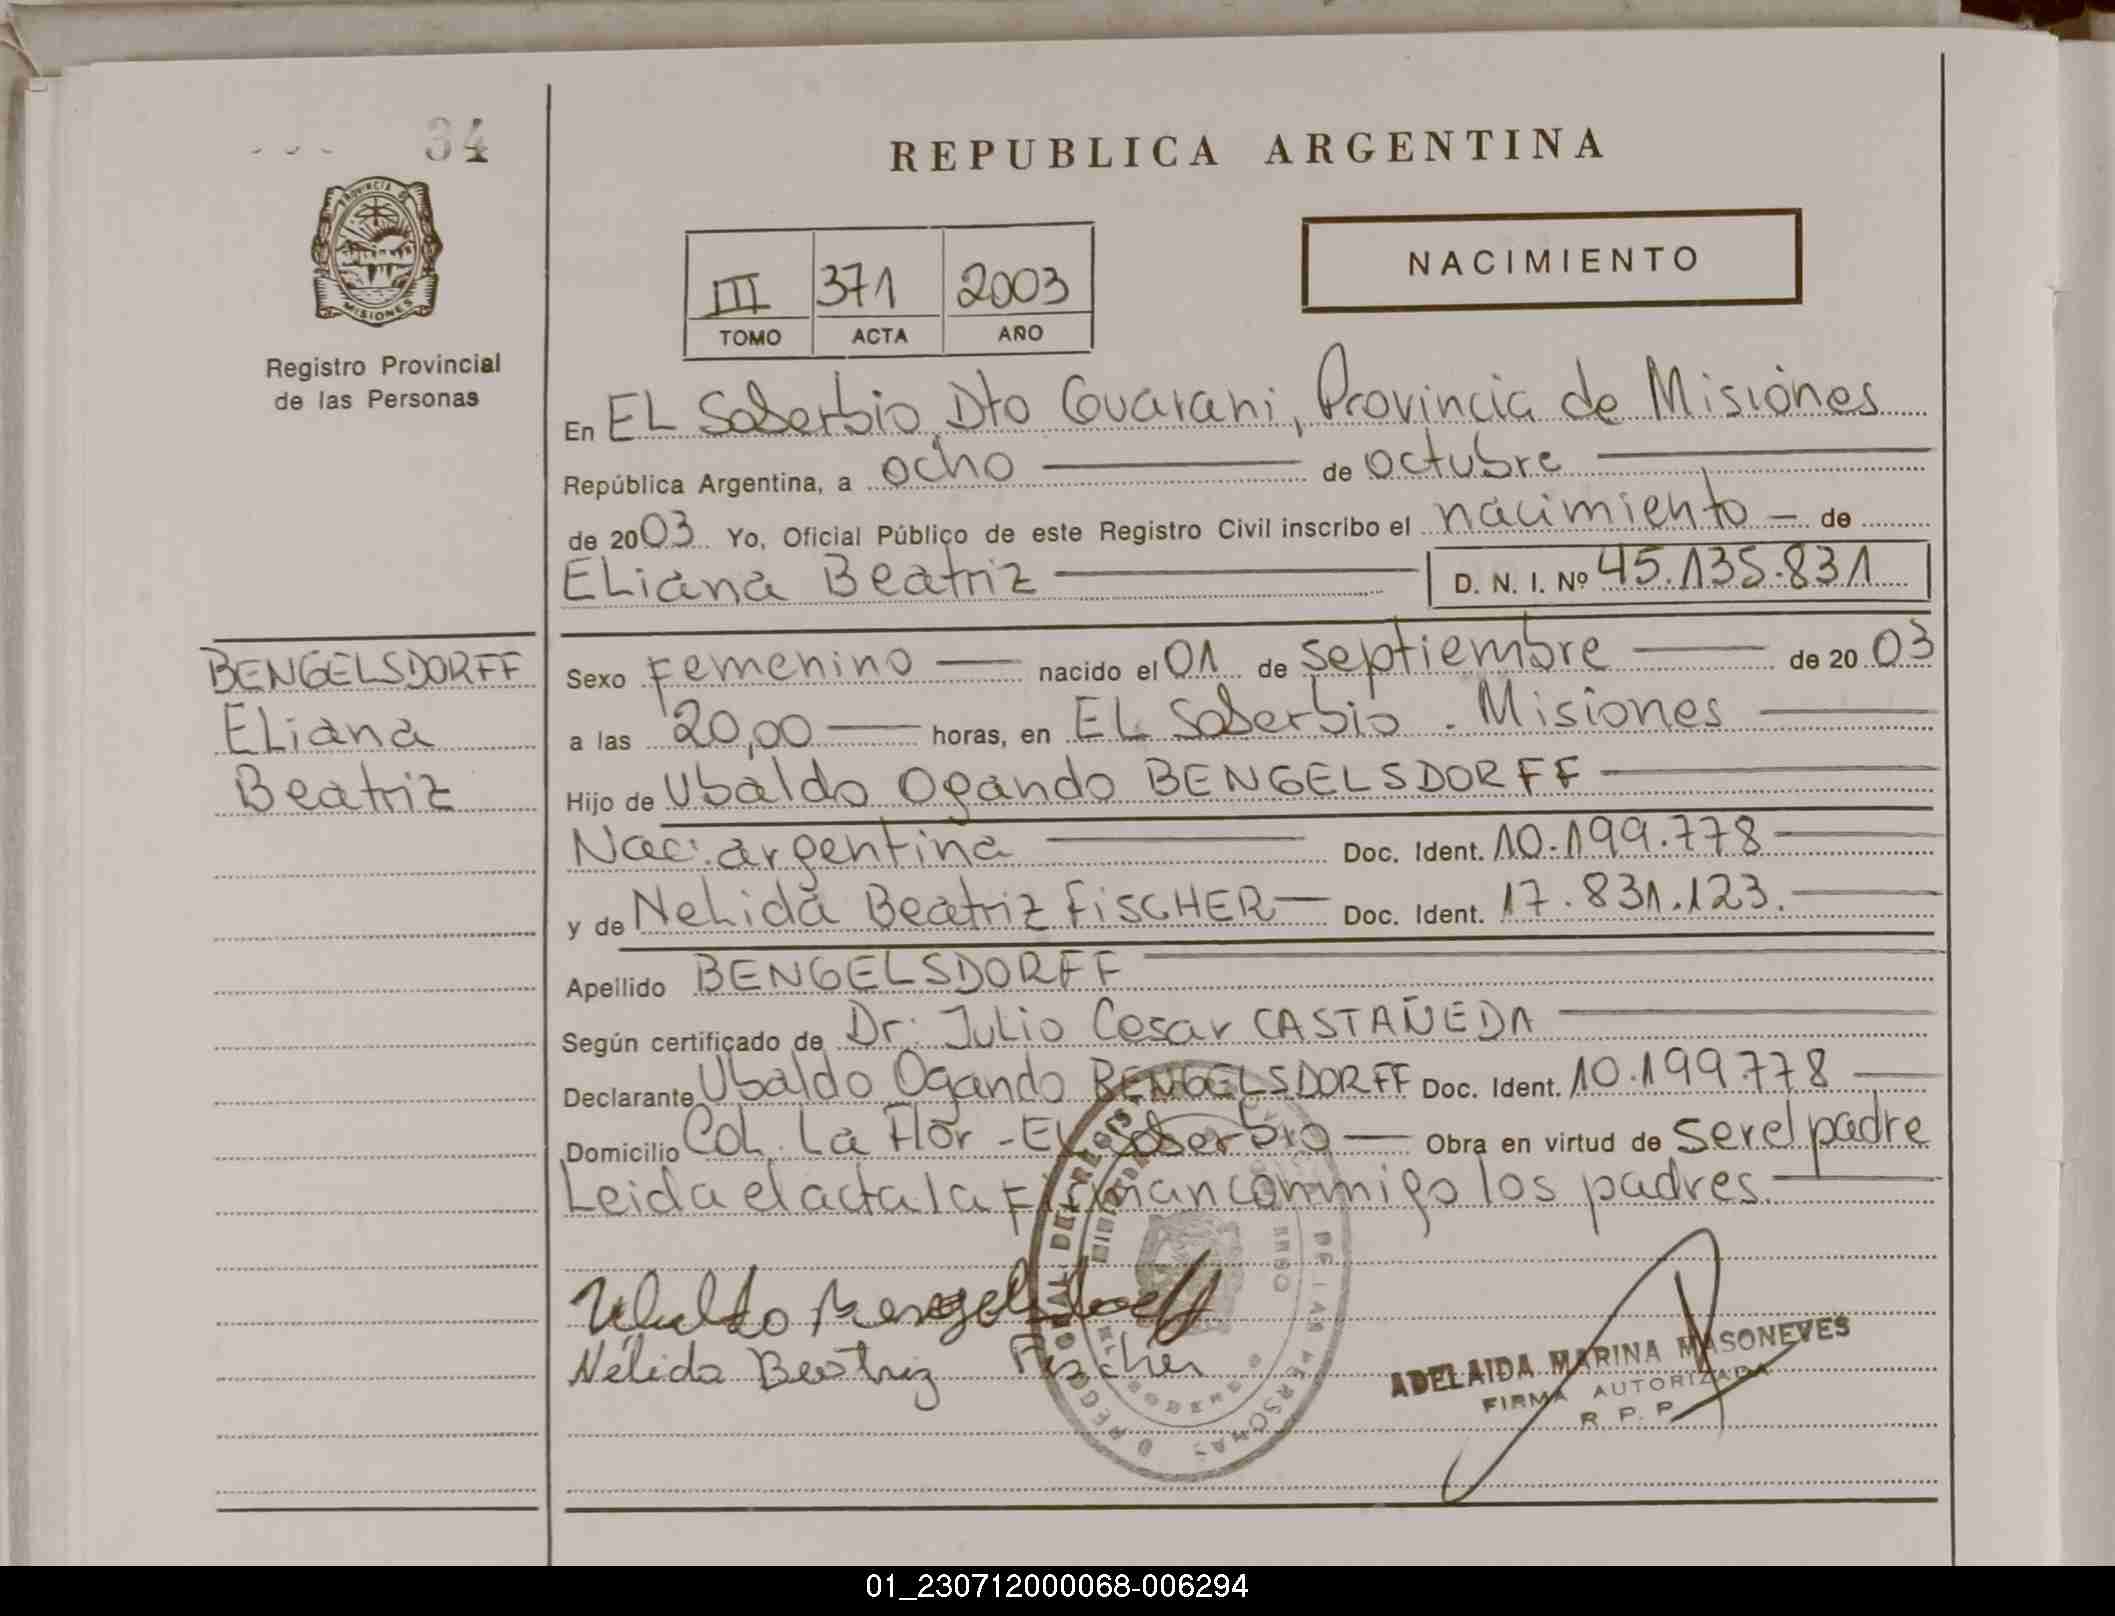 34
REPUBLICA ARGENTINA
NACIMIENTO
III 371 2003
TOMO ACTA AÑO
PROVINCIA DE MISIONES
Registro Provincial
de las Personas
En EL Soberbio, Dto Guarani, Provincia de Misiones
República Argentina, a ocho de octubre
de 2003 Yo, Oficial Público de este Registro Civil inscribo el nacimiento de
ELiana Beatriz D. N. I. Nº 45.135.831
BENGELSDORFF
ELiana
Beatriz
Sexo Femenino nacido el 01 de septiembre de 2003
a las 20,00 horas, en EL Soberbio - Misiones
Hijo de Ubaldo Ogando BENGELSDORFF
Nac. argentina Doc. Ident. 10.199.778
y de NeLida Beatriz FiSCHER Doc. Ident. 17.831.123.
Apellido BENGELSDORFF
Según certificado de Dr. Julio Cesar CASTAÑEDA
Declarante Ubaldo Ogando BENGELSDORFF Doc. Ident. 10.199778
Domicilio Col. La Flor - EL Soberbio Obra en virtud de ser el padre
Leida el acta la Firman conmigo los padres
Ubaldo Bengelsdorff
Nélida Beatriz Fischer
DE LAS PERSONAS
ADELAIDA MARINA MASONEVES
FIRMA AUTORIZADA
R. P. P.
01_230712000068-006294